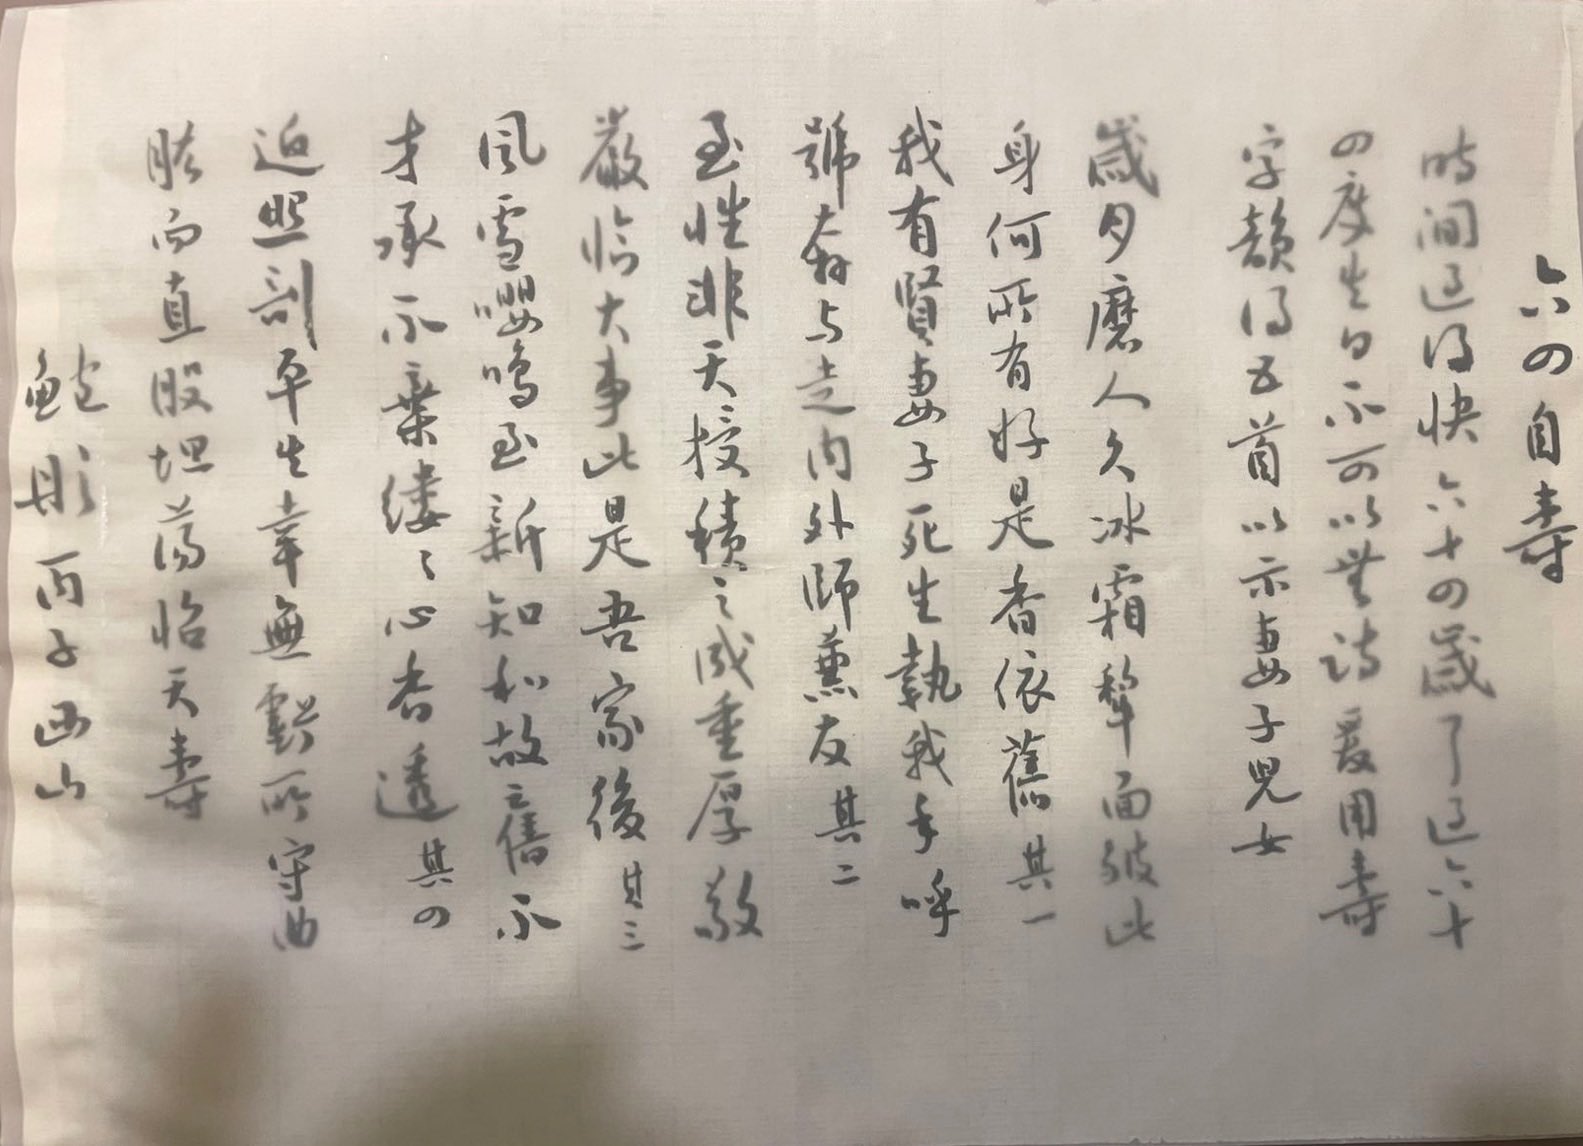 六四自壽
時間過得快六十四歲了過六十
四度生日不可以無詩爰用壽
字韻得五首以示妻子兒女
歲月磨人久冰霜犂面皴此
身何所有好是香依舊其一
我有賢妻子死生執我手呼
號奔与走内外師兼友其二
至性非天授積之成重厚敬
嚴臨大事此是吾家後其三
風雪嚶鳴至新知和故舊不
才承不棄縷々心香透其四
照剖平生幸無虧所守曲
肱而直股坦蕩怡天壽
鮑彤丙子西山